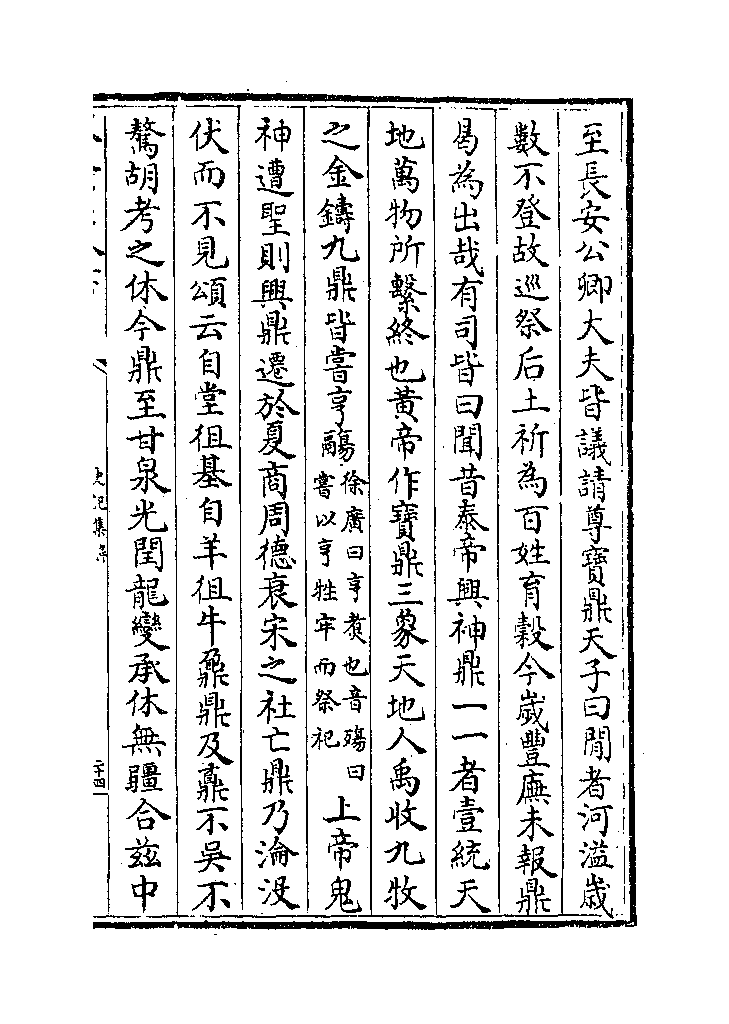 至長安公卿大夫皆議請尊寶鼎天子曰間者河溢歲
數不登故巡祭后土祈為百姓育穀今歲豐廡未報鼎
曷為出哉有司皆曰聞昔泰帝興神鼎一一者壹統天
地萬物所繫終也黃帝作寶鼎三象天地人禹收九牧
之金鑄九鼎皆嘗亨鬺徐廣曰亨煮也音殤曰嘗以亨牲牢而祭祀上帝鬼
神遭聖則興鼎遷於夏商周德衰宋之社亡鼎乃淪沒
伏而不見頌云自堂徂基自羊徂牛鼐鼎及鼒不吳不
驁胡考之休今鼎至甘泉光閏龍變承休無疆合茲中
史記集解
二十四